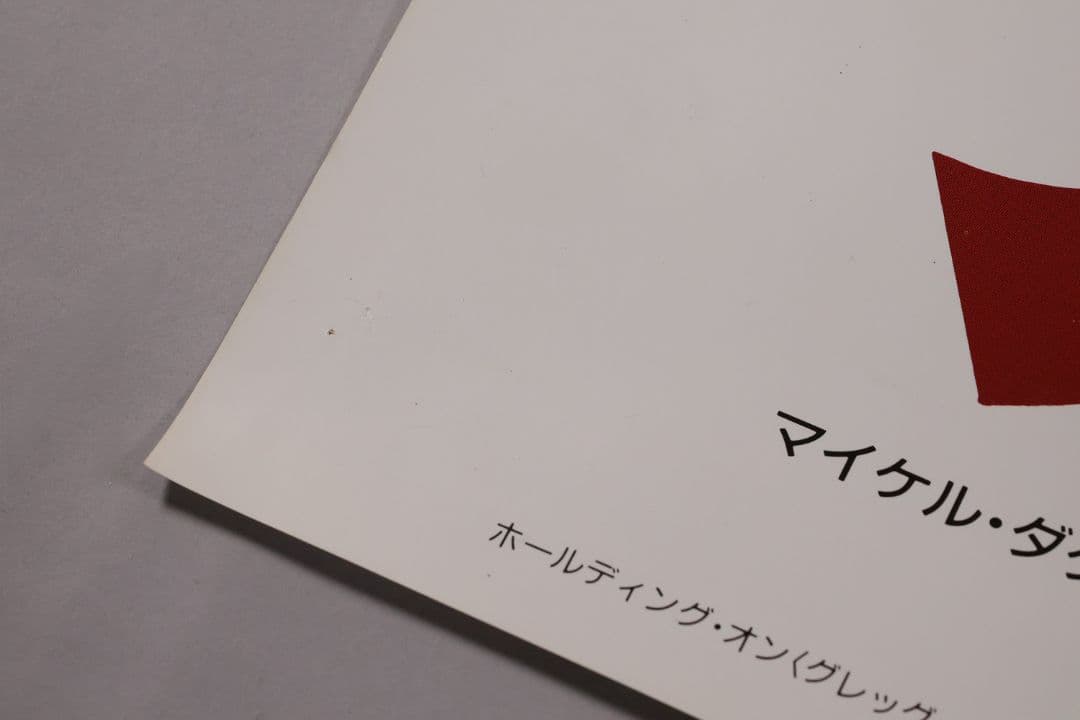 マイケル・ダグ
ホールディング・オン〈グレッグ